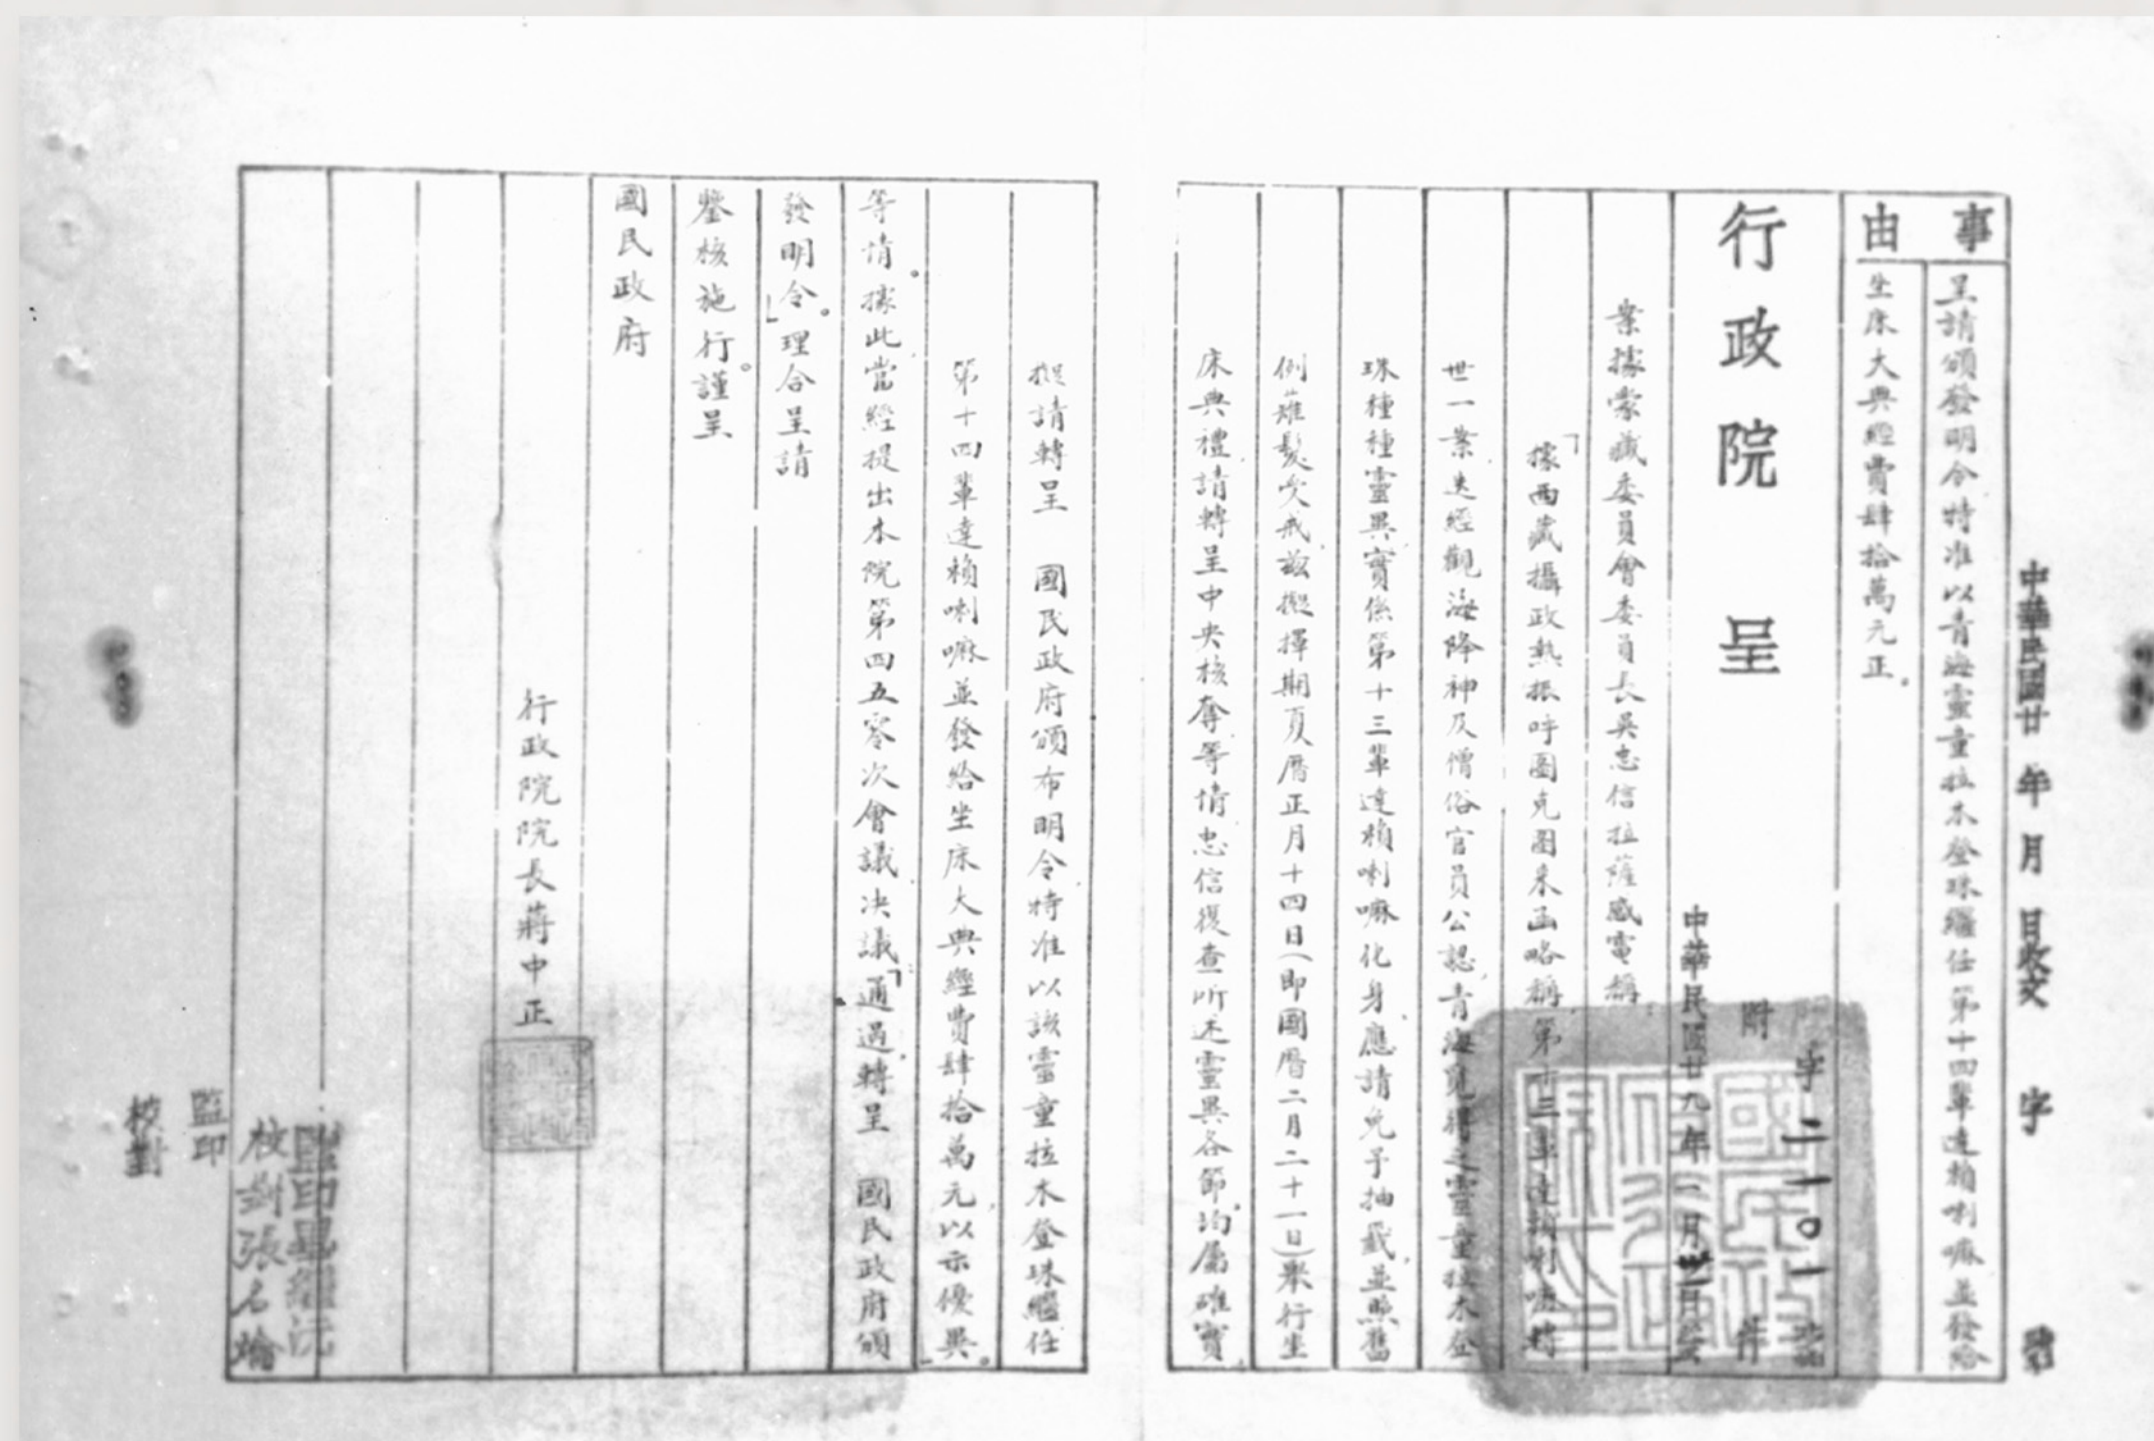 中華民國廿 年 月 日收文 字 號
事由
呈請頒發明令特准以青海靈童拉木登珠繼任第十四輩達賴喇嘛並發給
坐床大典經費肆拾萬元正。
行政院 呈
附 件
字二一〇一號
中華民國廿九年一月卅一日發
案據蒙藏委員會委員長吳忠信拉薩感電稱
「據西藏攝政熱振呼圖克圖來函略稱第十三輩達賴喇嘛轉
世一案迭經觀海降神及僧俗官員公認青海覓得之靈童拉木登
珠種種靈異實係第十三輩達賴喇嘛化身應請免予抽籤並照舊
例薙髮受戒茲擬擇期夏曆正月十四日(即國曆二月二十一日)舉行坐
床典禮請轉呈中央核奪等情忠信復查所述靈異各節均屬確實
擬請轉呈 國民政府頒布明令特准以該靈童拉木登珠繼任
第十四輩達賴喇嘛並發給坐床大典經費肆拾萬元以示優異。」
等情。據此當經提出本院第四五零次會議決議「通過轉呈 國民政府頒
發明令。」理合呈請
鑒核施行。謹呈
國民政府
行政院院長蔣中正
監印
校對
校對張名